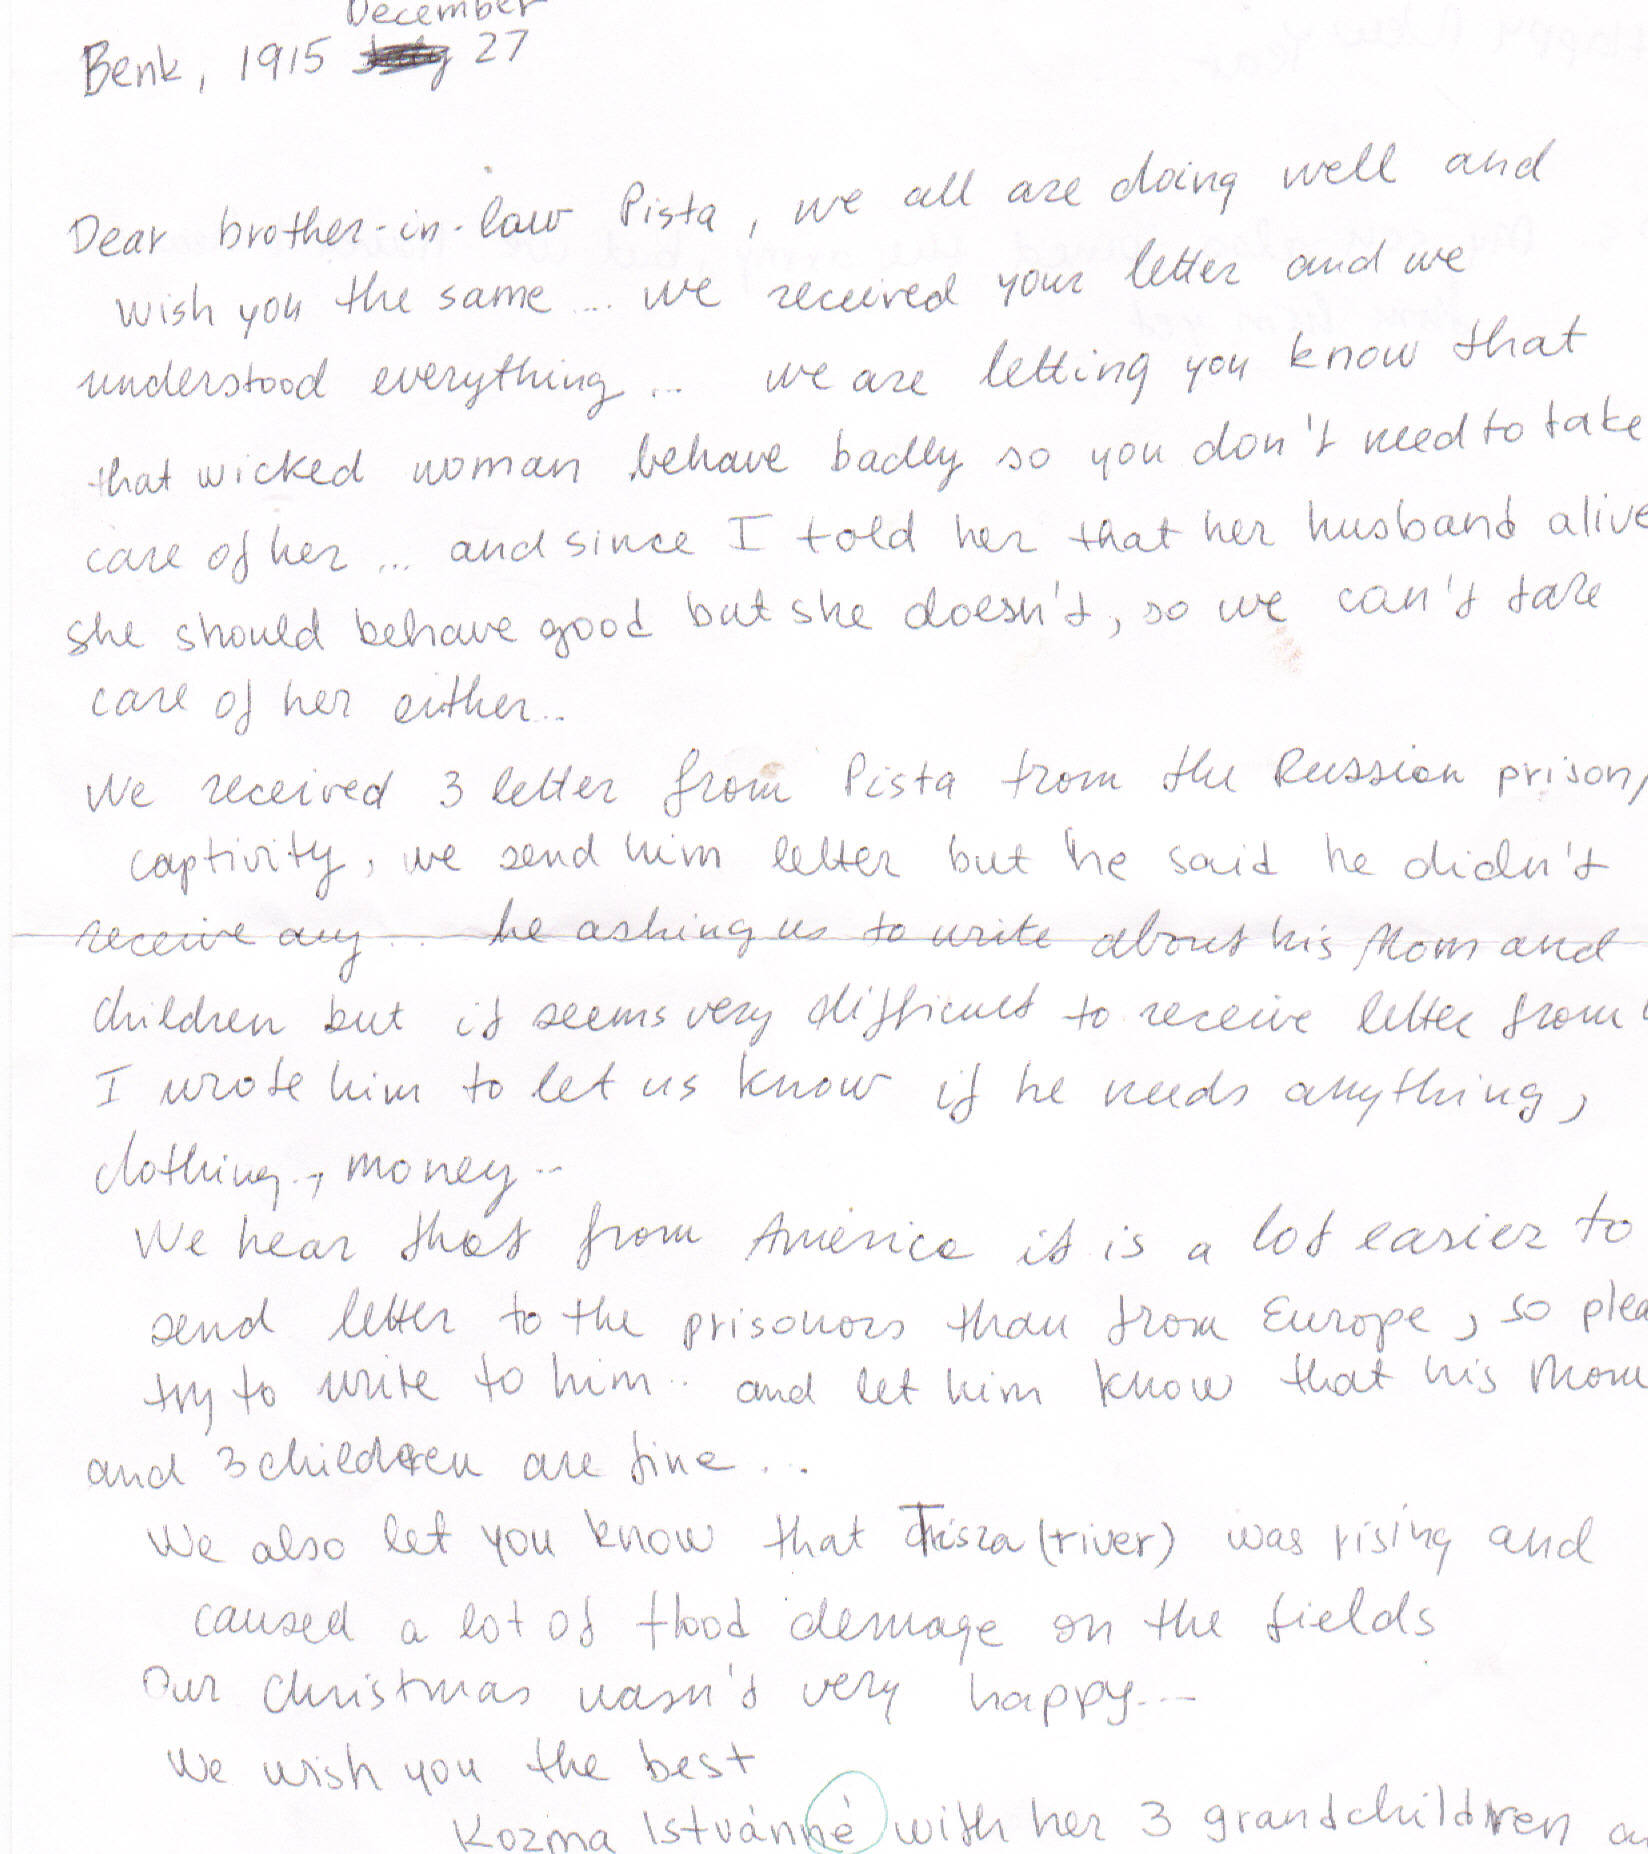 December
Benk, 1915 27
Dear brother-in-law Pista, we all are doing well and
wish you the same... we received your letter and we
understood everything... we are letting you know that
that wicked woman behave badly so you don't need to take
care of her... and since I told her that her husband alive
she should behave good but she doesn't, so we can't take
care of her either...
We received 3 letter from Pista from the Russian prison,
captivity, we send him letter but he said he didn't
receive any... he asking us to write about his Mom and
children but it seems very difficult to receive letter from
I wrote him to let us know if he needs anything,
clothing.., money...
We hear that from America it is a lot easier to
send letter to the prisonors than from Europe, so plea
try to write to him.. and let him know that his Mom
and 3 children are fine...
We also let you know that Tisza (river) was rising and
caused a lot of flood demage on the fields
Our Christmas wasn't very happy...
We wish you the best
Kozma Istvánné with her 3 grandchildren